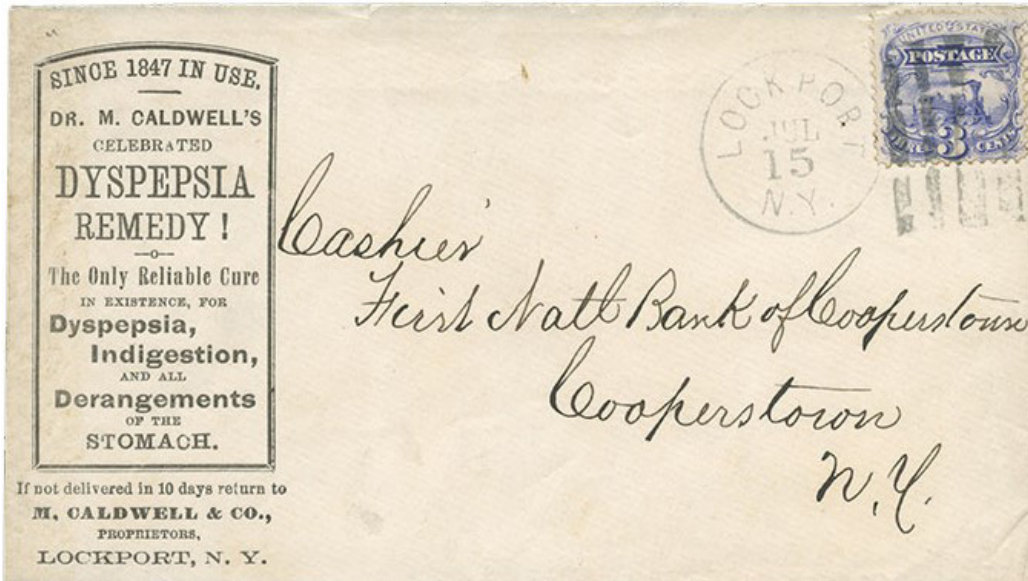 SINCE 1847 IN USE.
DR. M. CALDWELL'S
CELEBRATED
DYSPEPSIA
REMEDY!
The Only Reliable Cure
IN EXISTENCE, FOR
Dyspepsia,
Indigestion,
AND ALL
Derangements
OF THE
STOMACH.
If not delivered in 10 days return to
M. CALDWELL & CO.,
PROPRIETORS,
LOCKPORT, N. Y.
LOCKPORT
JUL
15
N.Y.
UNITED STATES
POSTAGE
THREE 3 CENTS
Cashier
First Natl Bank of Cooperstown
Cooperstown
N.Y.